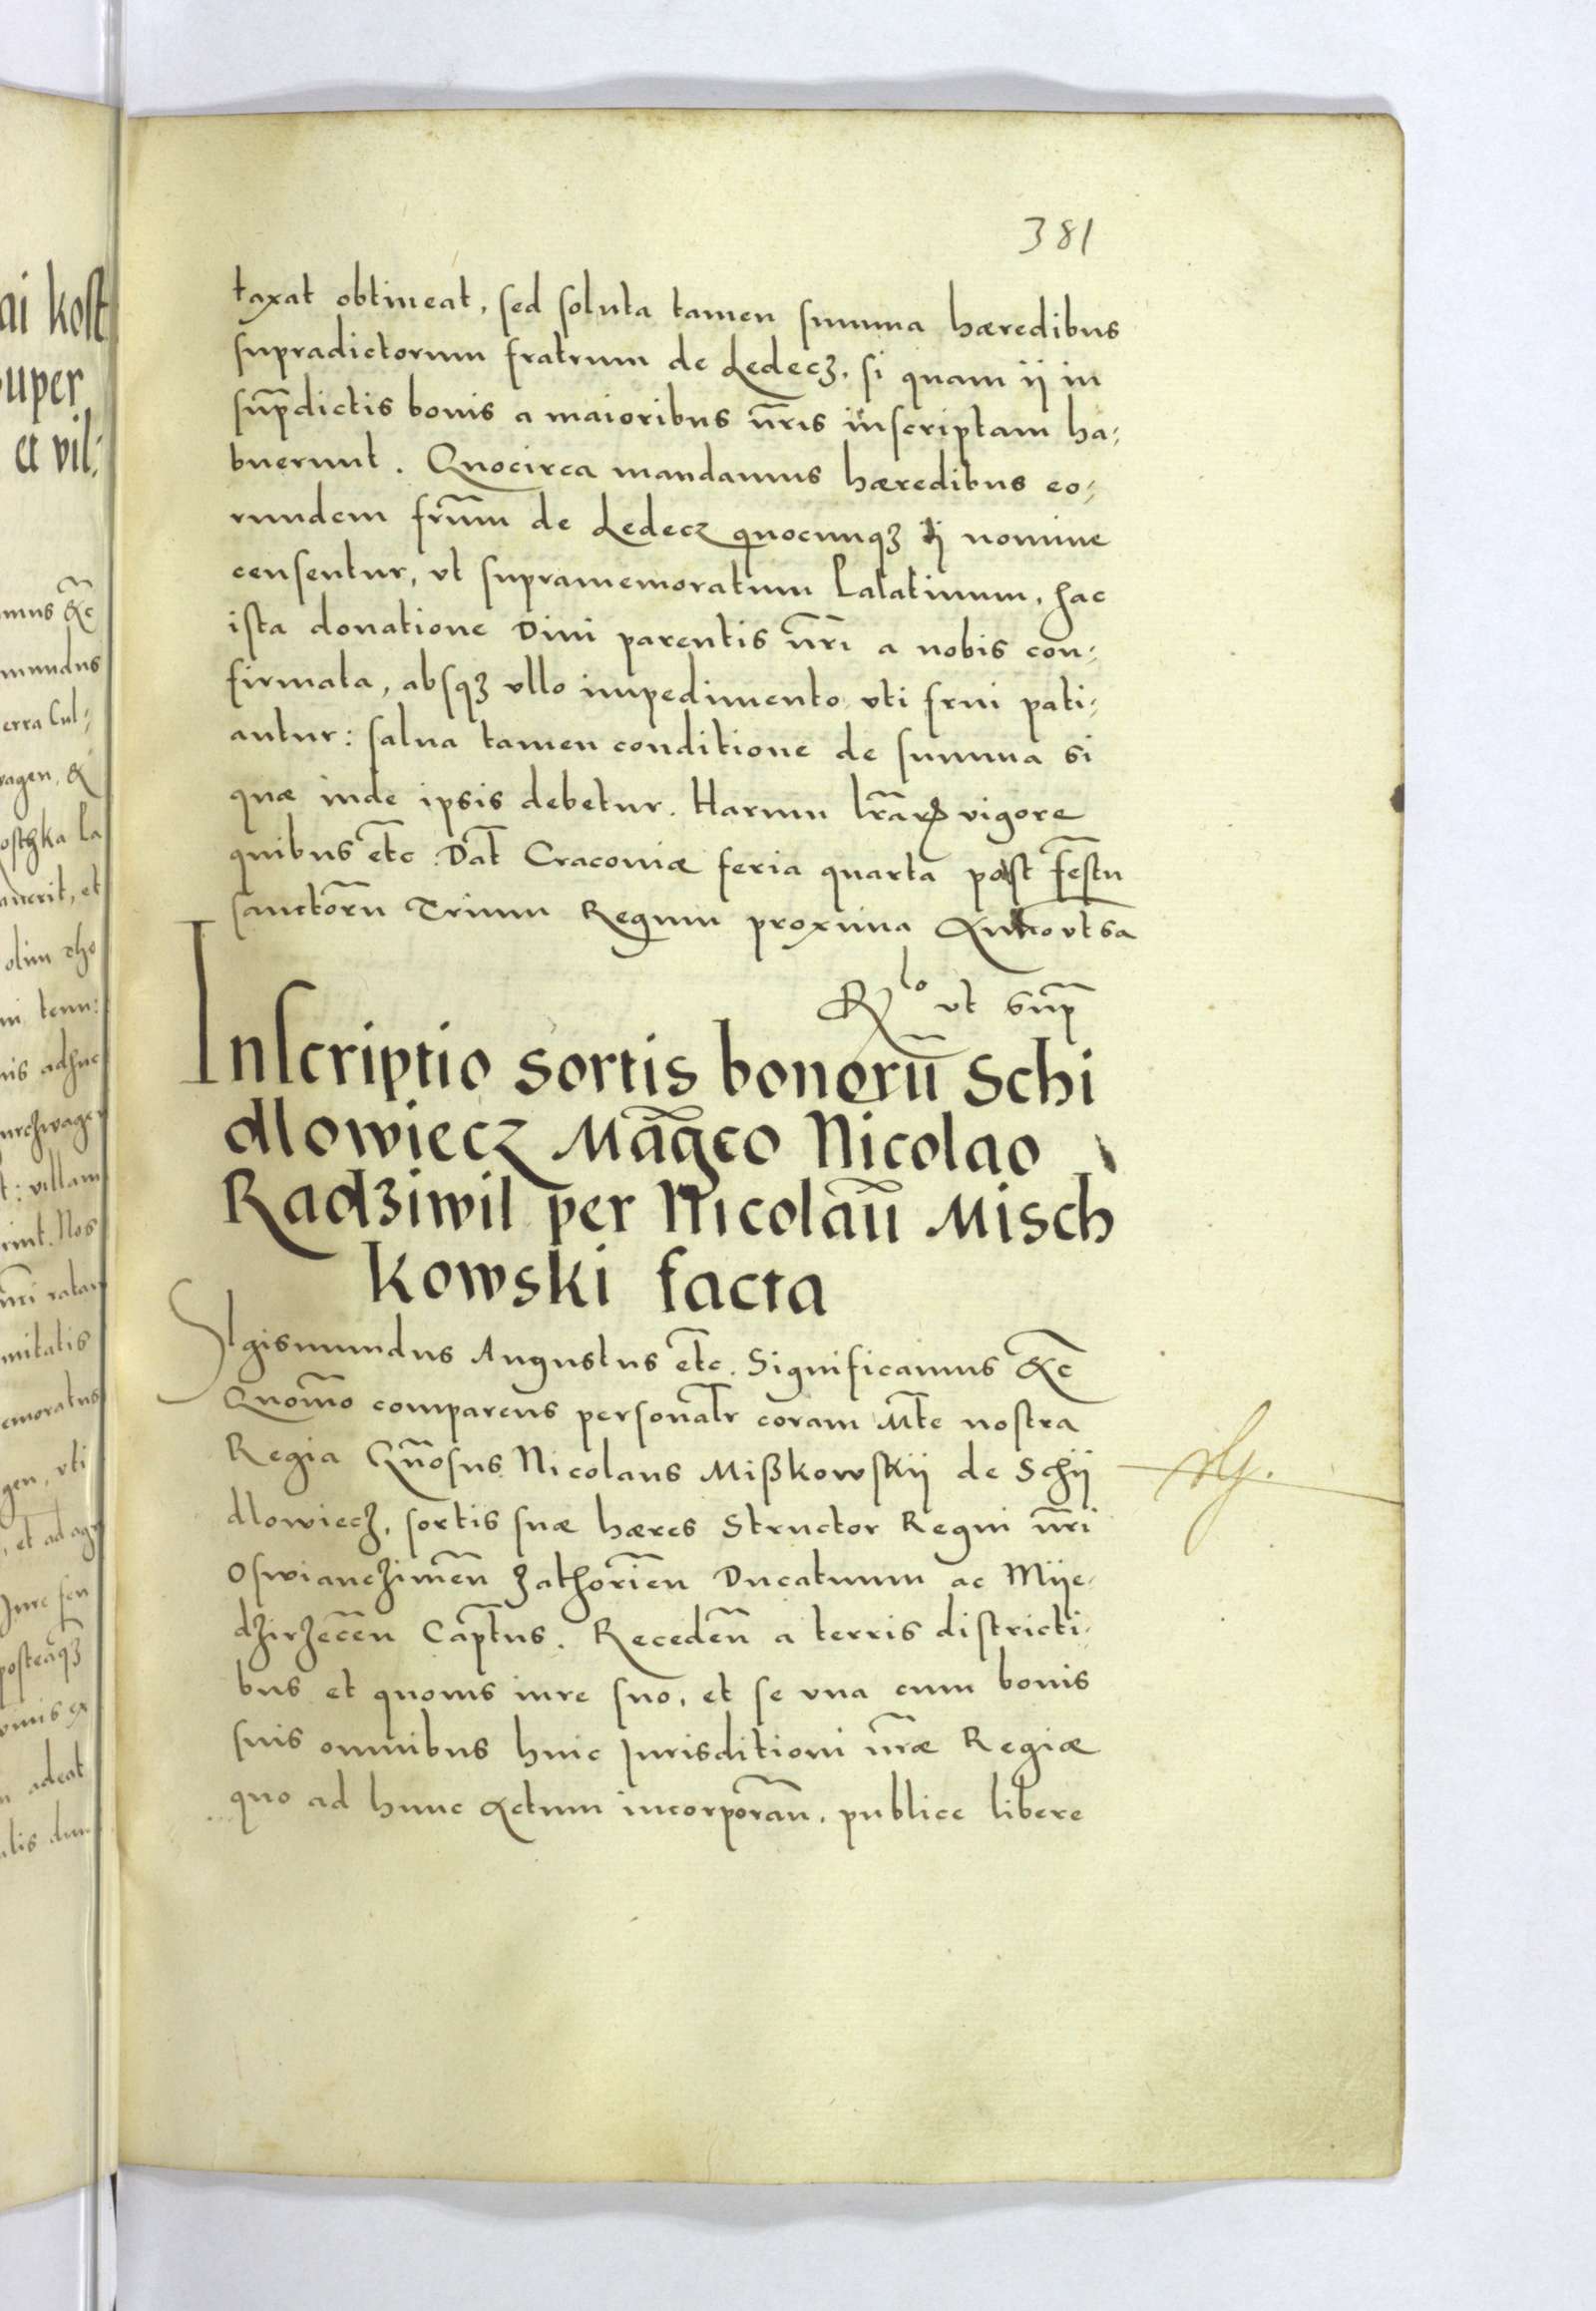 381
taxat obtineat, sed soluta tamen summa hæredibus
supradictorum fratrum de Ledecz, si quam ij in
sup̃dictis bonis a maioribus nr̃is inscriptam ha-
buerunt. Quocirca mandamus hæredibus eo-
rundem fr̃um de Ledecz quocunqꝫ ij nomine
censentur, vt supramemoratum Palatinum, hac
ista donatione Diui parentis nr̃i a nobis con-
firmata, absqꝫ vllo impedimento vti frui pati-
antur: salua tamen conditione de summa si
quæ inde ipsis debetur. Harum lr̃arꝝ vigore
quibus etc̃. Dat̃ Cracouiæ feria quarta post festũ
sanctorũ Trium Regum proxima vt sa
Rlo vt sup̃
Inscriptio sortis bonorũ Schi
dlowiecz Mãgco Nicolao
Radziwil per Nicolaũ Misch
kowski facta
Sigismundus Augustus etc̃. Significamus &c̃
Quom̃o comparens personalr̃ coram Mt̃e nostra
Regia Gñosus Nicolaus Mißkowskij de Schij
dlowiecz, sortis suæ hæres Structor Regni nr̃i
Oswianczimeñ Zathorieñ Ducatuum ac Mije-
dzirzeceñ Cap̃tus. Recedeñ a terris districti-
bus et quouis iure suo, et se vna cum bonis
suis omnibus huic Jurisditioni nr̃æ Regiæ
quo ad hunc actum incorporañ, publice libere
ai kost
super
et vil:
mus &c̃
mundus
erra Cul-
wagen, &
ostzka Pa
auerit, et
olim Tho
ni, tenu:
nis adhuc
urchwagen
t: villam
rint. Nos
nr̃i ratam
mitatis
emoratus
gen, vti
, et ad agr
Jure seu
posteaqꝫ
omis ex
adeat
alis dum